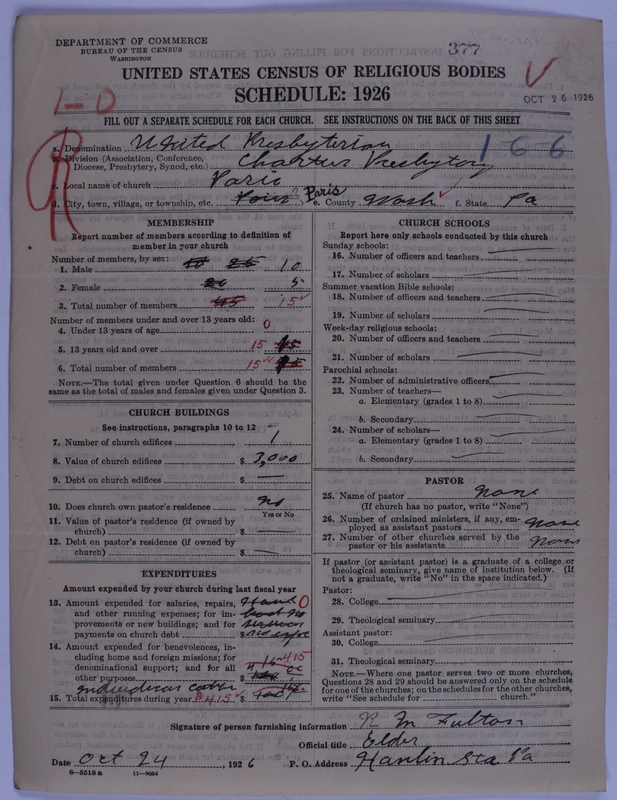 DEPARTMENT OF COMMERCE
BUREAU OF THE CENSUS
WASHINGTON
377
UNITED STATES CENSUS OF RELIGIOUS BODIES
SCHEDULE: 1926
OCT 26 1926
1-0
FILL OUT A SEPARATE SCHEDULE FOR EACH CHURCH. SEE INSTRUCTIONS ON THE BACK OF THIS SHEET
a. Denomination United Presbyterian 166
b. Division (Association, Conference, Diocese, Presbytery, Synod, etc.) Presbytery
c. Local name of church Paris
d. City, town, village, or township, etc. Paris e. County Wash f. State Pa
MEMBERSHIP
Report number of members according to definition of
member in your church
Number of members, by sex:
1. Male 10
2. Female 5
3. Total number of members 15
Number of members under and over 13 years old:
4. Under 13 years of age 0
5. 13 years old and over 15
6. Total number of members 15
NOTE.—The total given under Question 6 should be
same as the total of males and females given under Question 3.
CHURCH BUILDINGS
See instructions, paragraphs 10 to 12
7. Number of church edifices 1
8. Value of church edifices $ 3,000
9. Debt on church edifices $ —
10. Does church own pastor's residence no
Yes or No
11. Value of pastor's residence (if owned by
church) $ —
12. Debt on pastor's residence (if owned by
church) $ —
EXPENDITURES
Amount expended by your church during last fiscal year
13. Amount expended for salaries, repairs, 0
and other running expenses; for im-
provements or new buildings; and for
payments on church debt $
14. Amount expended for benevolences, in-
cluding home and foreign missions; for
denominational support; and for all 415
other purposes $
15. Total expenditures during year $ 415
CHURCH SCHOOLS
Report here only schools conducted by this church
Sunday schools:
16. Number of officers and teachers
17. Number of scholars
Summer vacation Bible schools:
18. Number of officers and teachers
19. Number of scholars
Week-day religious schools:
20. Number of officers and teachers
21. Number of scholars
Parochial schools:
22. Number of administrative officers
23. Number of teachers—
a. Elementary (grades 1 to 8)
b. Secondary
24. Number of scholars—
a. Elementary (grades 1 to 8)
b. Secondary
PASTOR
25. Name of pastor None
(If church has no pastor, write "None")
26. Number of ordained ministers, if any, em-
ployed as assistant pastors None
27. Number of other churches served by the
pastor or his assistants None
If pastor (or assistant pastor) is a graduate of a college or
theological seminary, give name of institution below. (If
not a graduate, write "No" in the space indicated.)
Pastor:
28. College
29. Theological seminary
Assistant pastor:
30. College
31. Theological seminary
NOTE.—Where one pastor serves two or more churches,
Questions 28 and 29 should be answered only on the schedule
for one of the churches; on the schedules for the other churches,
write "See schedule for church."
Signature of person furnishing information R M Fulton
Official title Elder
Date Oct 24, 1926 P. O. Address Hanlin Sta Pa
8—5518 a 11—9684